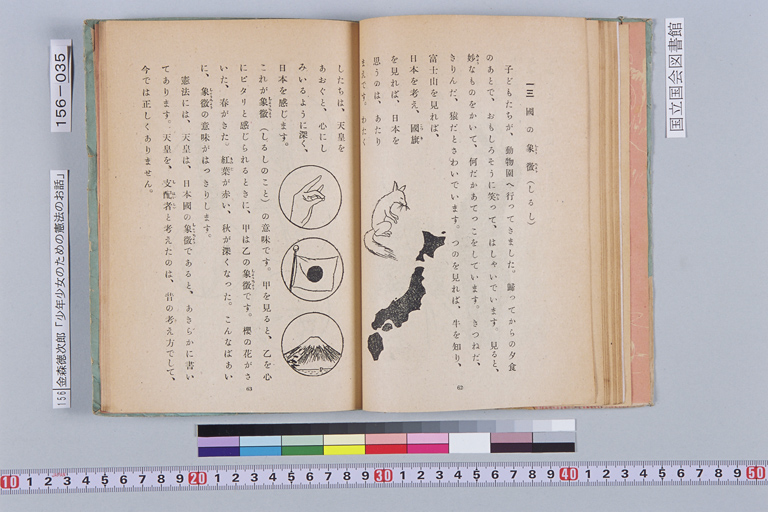 国立国会図書館
156—035
156 金森徳次郎「少年少女のための憲法のお話」
一三 國の象徴(しるし)
子どもたちが、動物園へ行ってきました。歸ってからの夕食
のあとで、おもしろそうに笑って、はしゃいでいます。見ると、
妙なものをかいて、何だかあてっこをしています。きつねだ、
きりんだ、猿だとさわいでいます。つのを見れば、牛を知り、
富士山を見れば、
日本を考え、國旗
を見れば、日本を
思うのは、あたり
まえです。わたく
62
したちは、天皇を
あおぐと、心にし
みいるように深く、
日本を感じます。
これが象徴(しるしのこと)の意味です。甲を見ると、乙を心
にピタリと感じられるときに、甲は乙の象徴です。櫻の花がさ
いた、春がきた。紅葉が赤い、秋が深くなった。こんなばあい
に、象徴の意味がはっきりします。
憲法には、天皇は、日本國の象徴であると、あきらかに書い
てあります。天皇を、支配者と考えたのは、昔の考え方でして、
今では正しくありません。
63
10 1 2 3 4 5 6 7 8 9 20 1 2 3 4 5 6 7 8 9 30 1 2 3 4 5 6 7 8 9 40 1 2 3 4 5 6 7 8 9 50